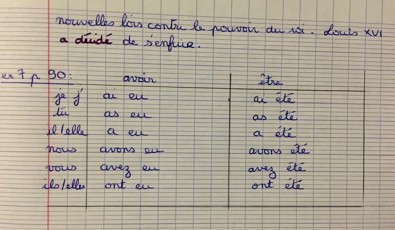 nouvelles lois contre le pouvoir du roi. Louis XVI
a décidé de s'enfuir.
ex 7 p 90: avoir être
je j' ai eu ai été
tu as eu as été
il/elle a eu a été
nous avons eu avons été
vous avez eu avez été
ils/elles ont eu ont été